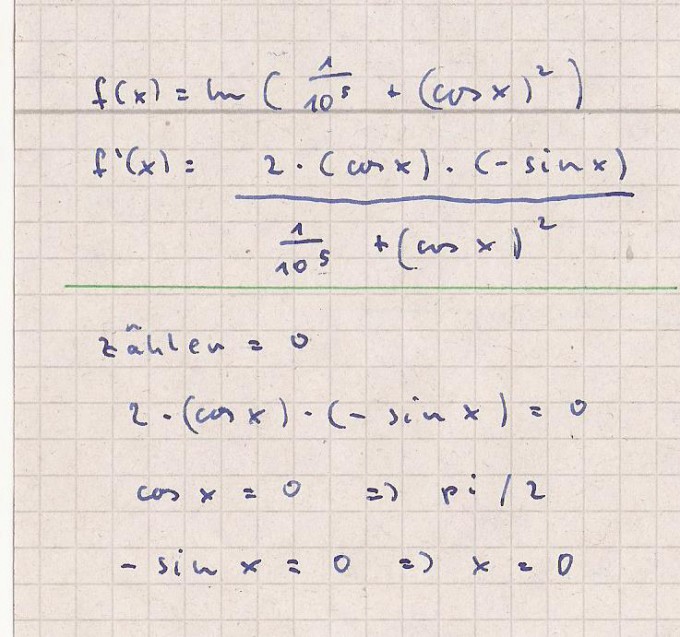 f(x) = ln ( 1/10^5 + (cos x)^2 )
f'(x) = 2 · (cos x) · (- sin x) / 1/10^5 + (cos x)^2
zählen = 0
2 · (cos x) · (- sin x) = 0
cos x = 0 => pi / 2
- sin x = 0 => x = 0